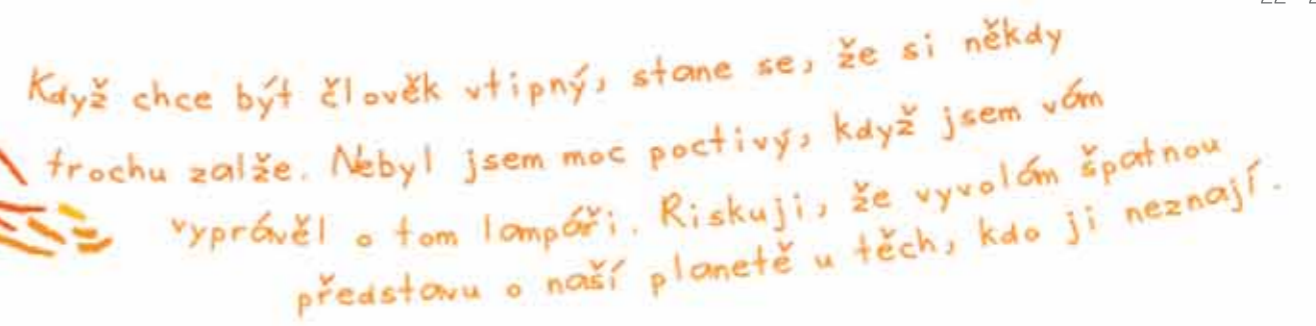 Když chce být člověk vtipný, stane se, že si někdy
trochu zalže. Nebyl jsem moc poctivý, když jsem vám
vyprávěl o tom lampáři. Riskuji, že vyvolám špatnou
představu o naší planetě u těch, kdo ji neznají.